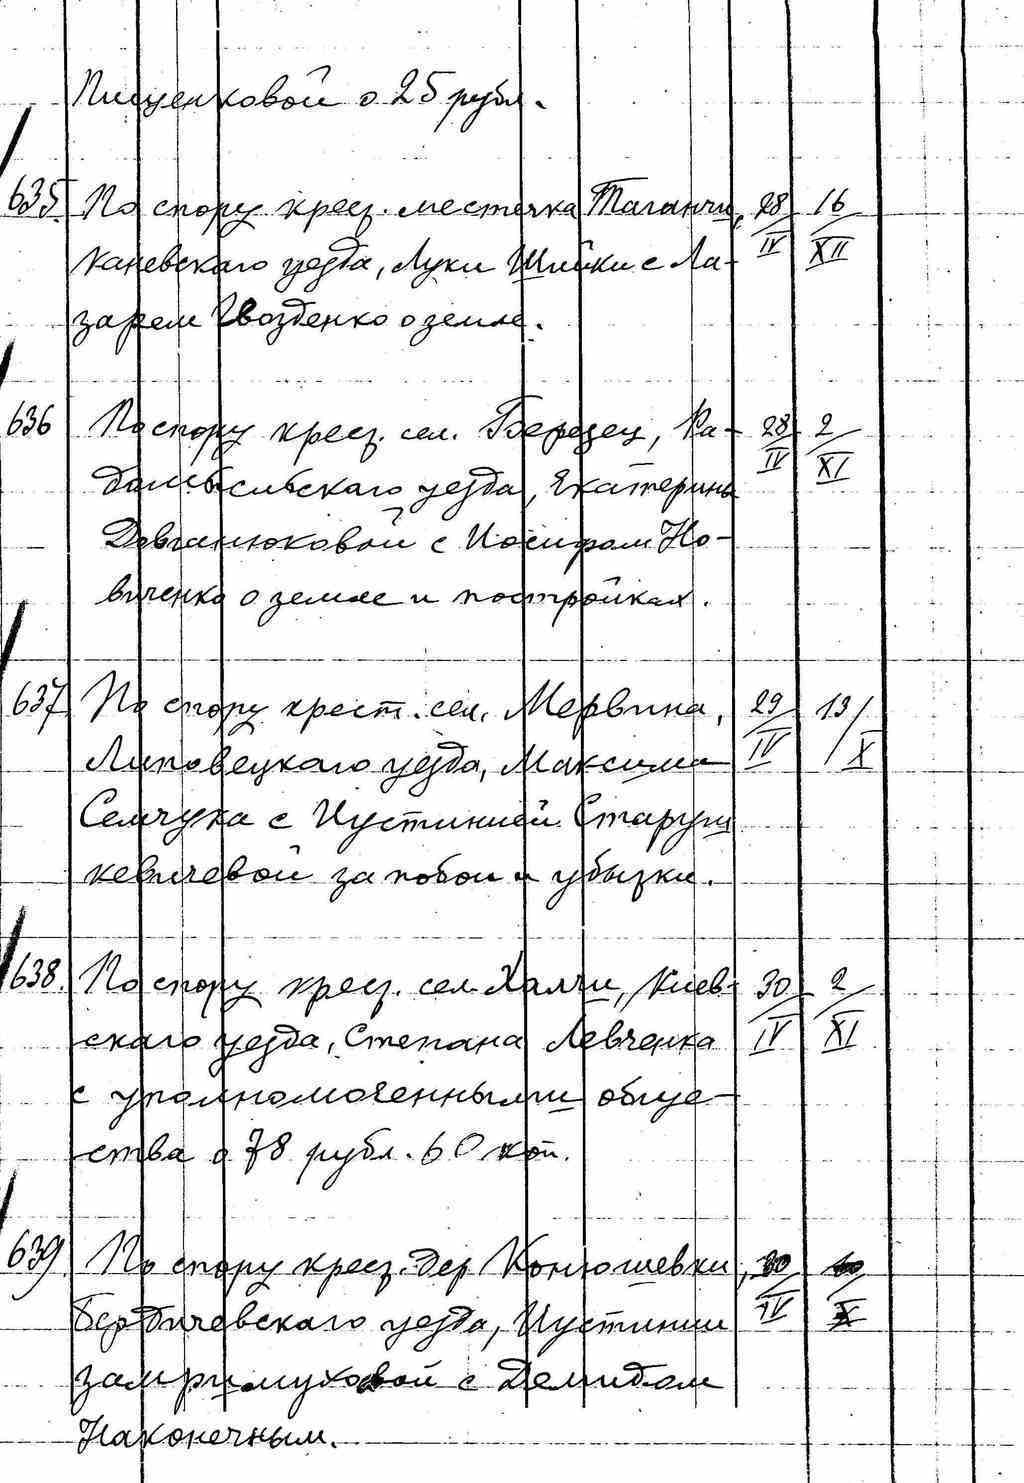 Пищенковой о 25 рубл.
635. По спору крест. местечка Таганчи, 28/IV 16/XII
Каневскаго уезда, Луки Шпики с Ла-
зарем Гвозденко о земле.
636 По спору крест. сел. Березец, Ра- 28/IV 2/XI
домысльскаго уезда, Екатерины
Довганюковой с Иосифом Но-
виченко о земле и постройках.
637. По спору крест. сел. Мервина, 29/IV 13/X
Липовецкаго уезда, Максима
Семчука с Иустинией Старуш
кевичевой за побои и убытки.
638. По спору крест. сел. Халчи, Киев- 30/IV 2/XI
скаго уезда, Степана Левченка
с уполномоченными обще-
ства о 78 рубл. 60 коп.
639. По спору крест. дер Конюшевки, 30/IV X
Бердичевскаго уезда, Иустинии
Замримуховой с Демидом
Наконечным.